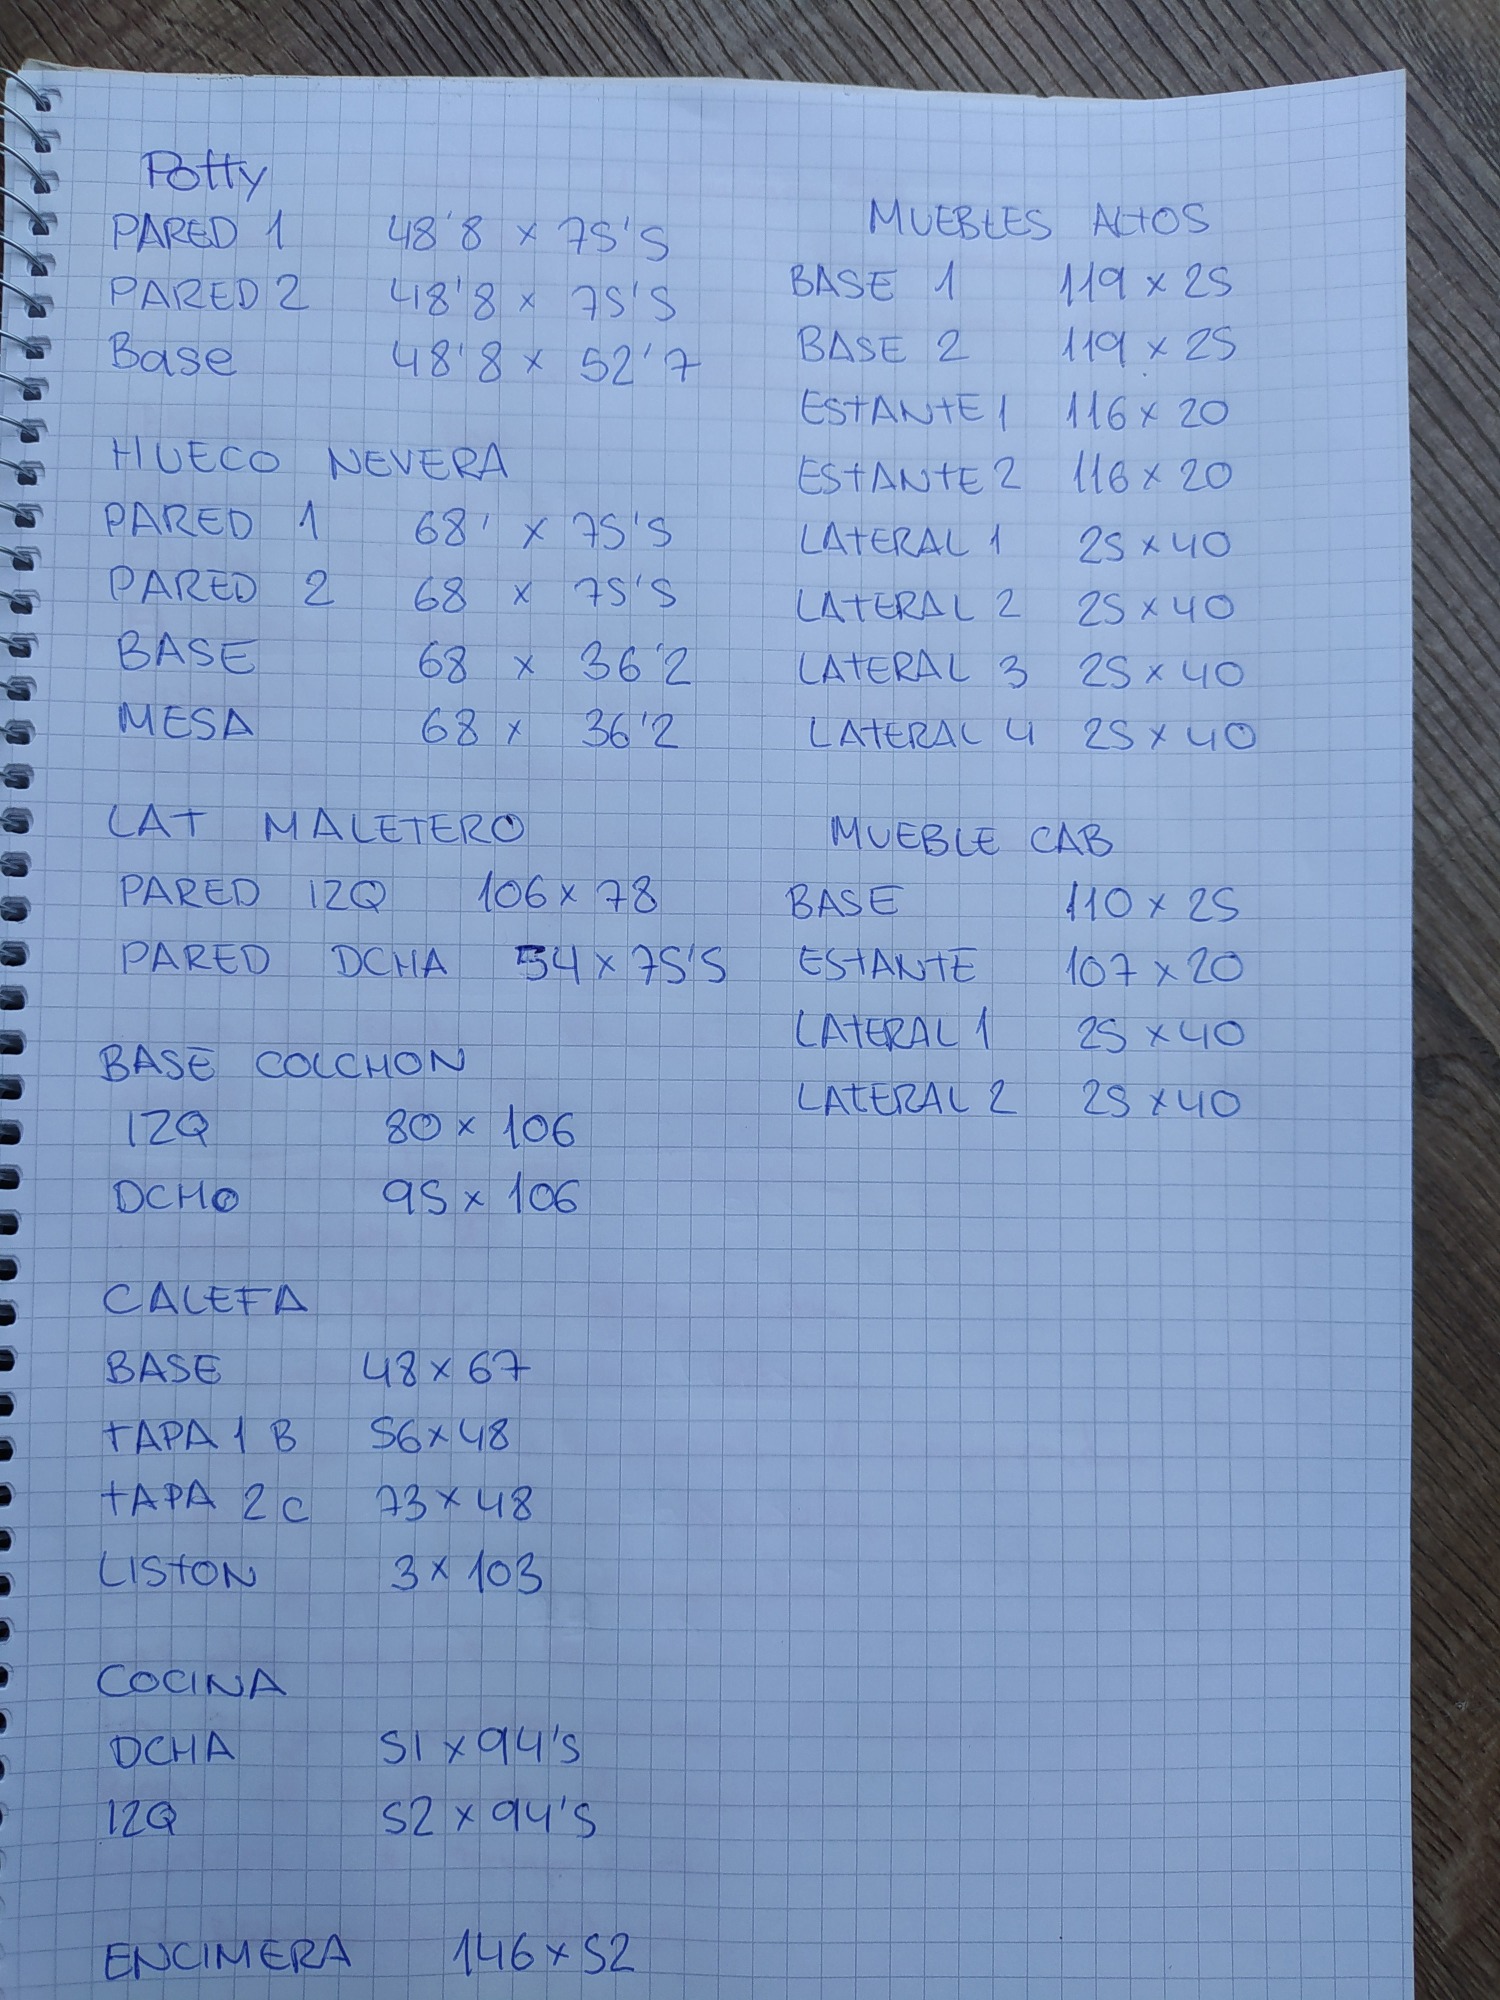 Potty
PARED 1 48'8 x 75'5
PARED 2 48'8 x 75'5
Base 48'8 x 52'7
HUECO NEVERA
PARED 1 68' x 75'5
PARED 2 68 x 75'5
BASE 68 x 36'2
MESA 68 x 36'2
LAT MALETERO
PARED IZQ 106 x 78
PARED DCHA 54 x 75'5
BASE COLCHON
IZQ 80 x 106
DCHO 95 x 106
CALEFA
BASE 48 x 67
TAPA 1 B 56 x 48
TAPA 2 C 73 x 48
LISTON 3 x 103
COCINA
DCHA 51 x 94'5
IZQ 52 x 94'5
ENCIMERA 146 x 52
MUEBLES ALTOS
BASE 1 119 x 25
BASE 2 119 x 25
ESTANTE 1 116 x 20
ESTANTE 2 116 x 20
LATERAL 1 25 x 40
LATERAL 2 25 x 40
LATERAL 3 25 x 40
LATERAL 4 25 x 40
MUEBLE CAB
BASE 110 x 25
ESTANTE 107 x 20
LATERAL 1 25 x 40
LATERAL 2 25 x 40